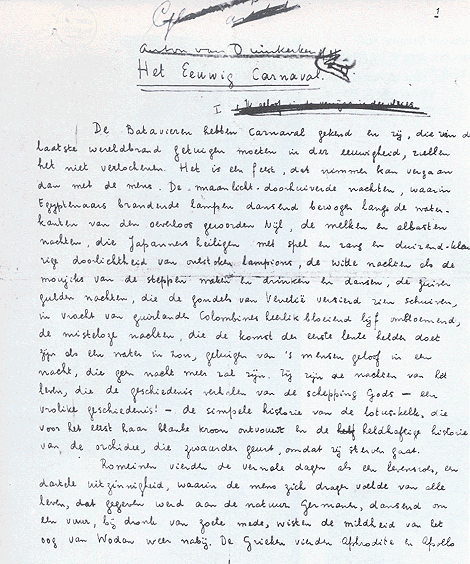 1
Anton van Duinkerken
Het Eeuwig Carnaval.
I
De Batavieren hebben Carnaval gekend en zij, die van de
laatste wereldbrand getuigen moeten in der eeuwigheid, zullen
het niet verlochenen. Het is een feest, dat nimmer kan vergaan
dan met de mens. De maanlicht-doorhuiverde nachten, waarin
Egyptenaars brandende lampen dansend bewogen langs de water-
kanten van den oeverloos geworden Nijl, de melken en albasten
nachten, die Japanners heiligen met spel en zang en duizend-kleu
rige doorlichtheid van ontstoken lampions, de witte nachten als de
moujiks van de steppen waken en drinken en dansen, de
gulden nachten, die de gondels van Venetië versierd zien schuiven,
in vracht van guirlanden Colombines heerlik bloeiend lijf ombloemend,
de misteloze nachten, die de komst der eerste lente helder doet
zijn als een water in zon, getuigen van 's mensen geloof in een
nacht, die geen nacht meer zal zijn. Zij zijn de nachten van het
leven, die de geschiedenis verhalen van de schepping Gods – een
vrolike geschiedenis! – de simpele historie van de lotuskelk, die
voor het eerst haar blanke kroon ontvouwt en de heldhaftige historie
van de orchidee, die zwaarder geurt, omdat zij sterven gaat.
Romeinen vierden de vernole dagen als een levensroes, een
dartele uitzinnigheid, waarin de mens zich drager voelde van alle
leven, dat gegeven werd aan de natuur. Germanen, dansend om
een vuur, bij dronk van zoele mede, wisten de mildheid van het
oog van Wodan weer nabij. De Grieken vierden Aphrodite en Apollo